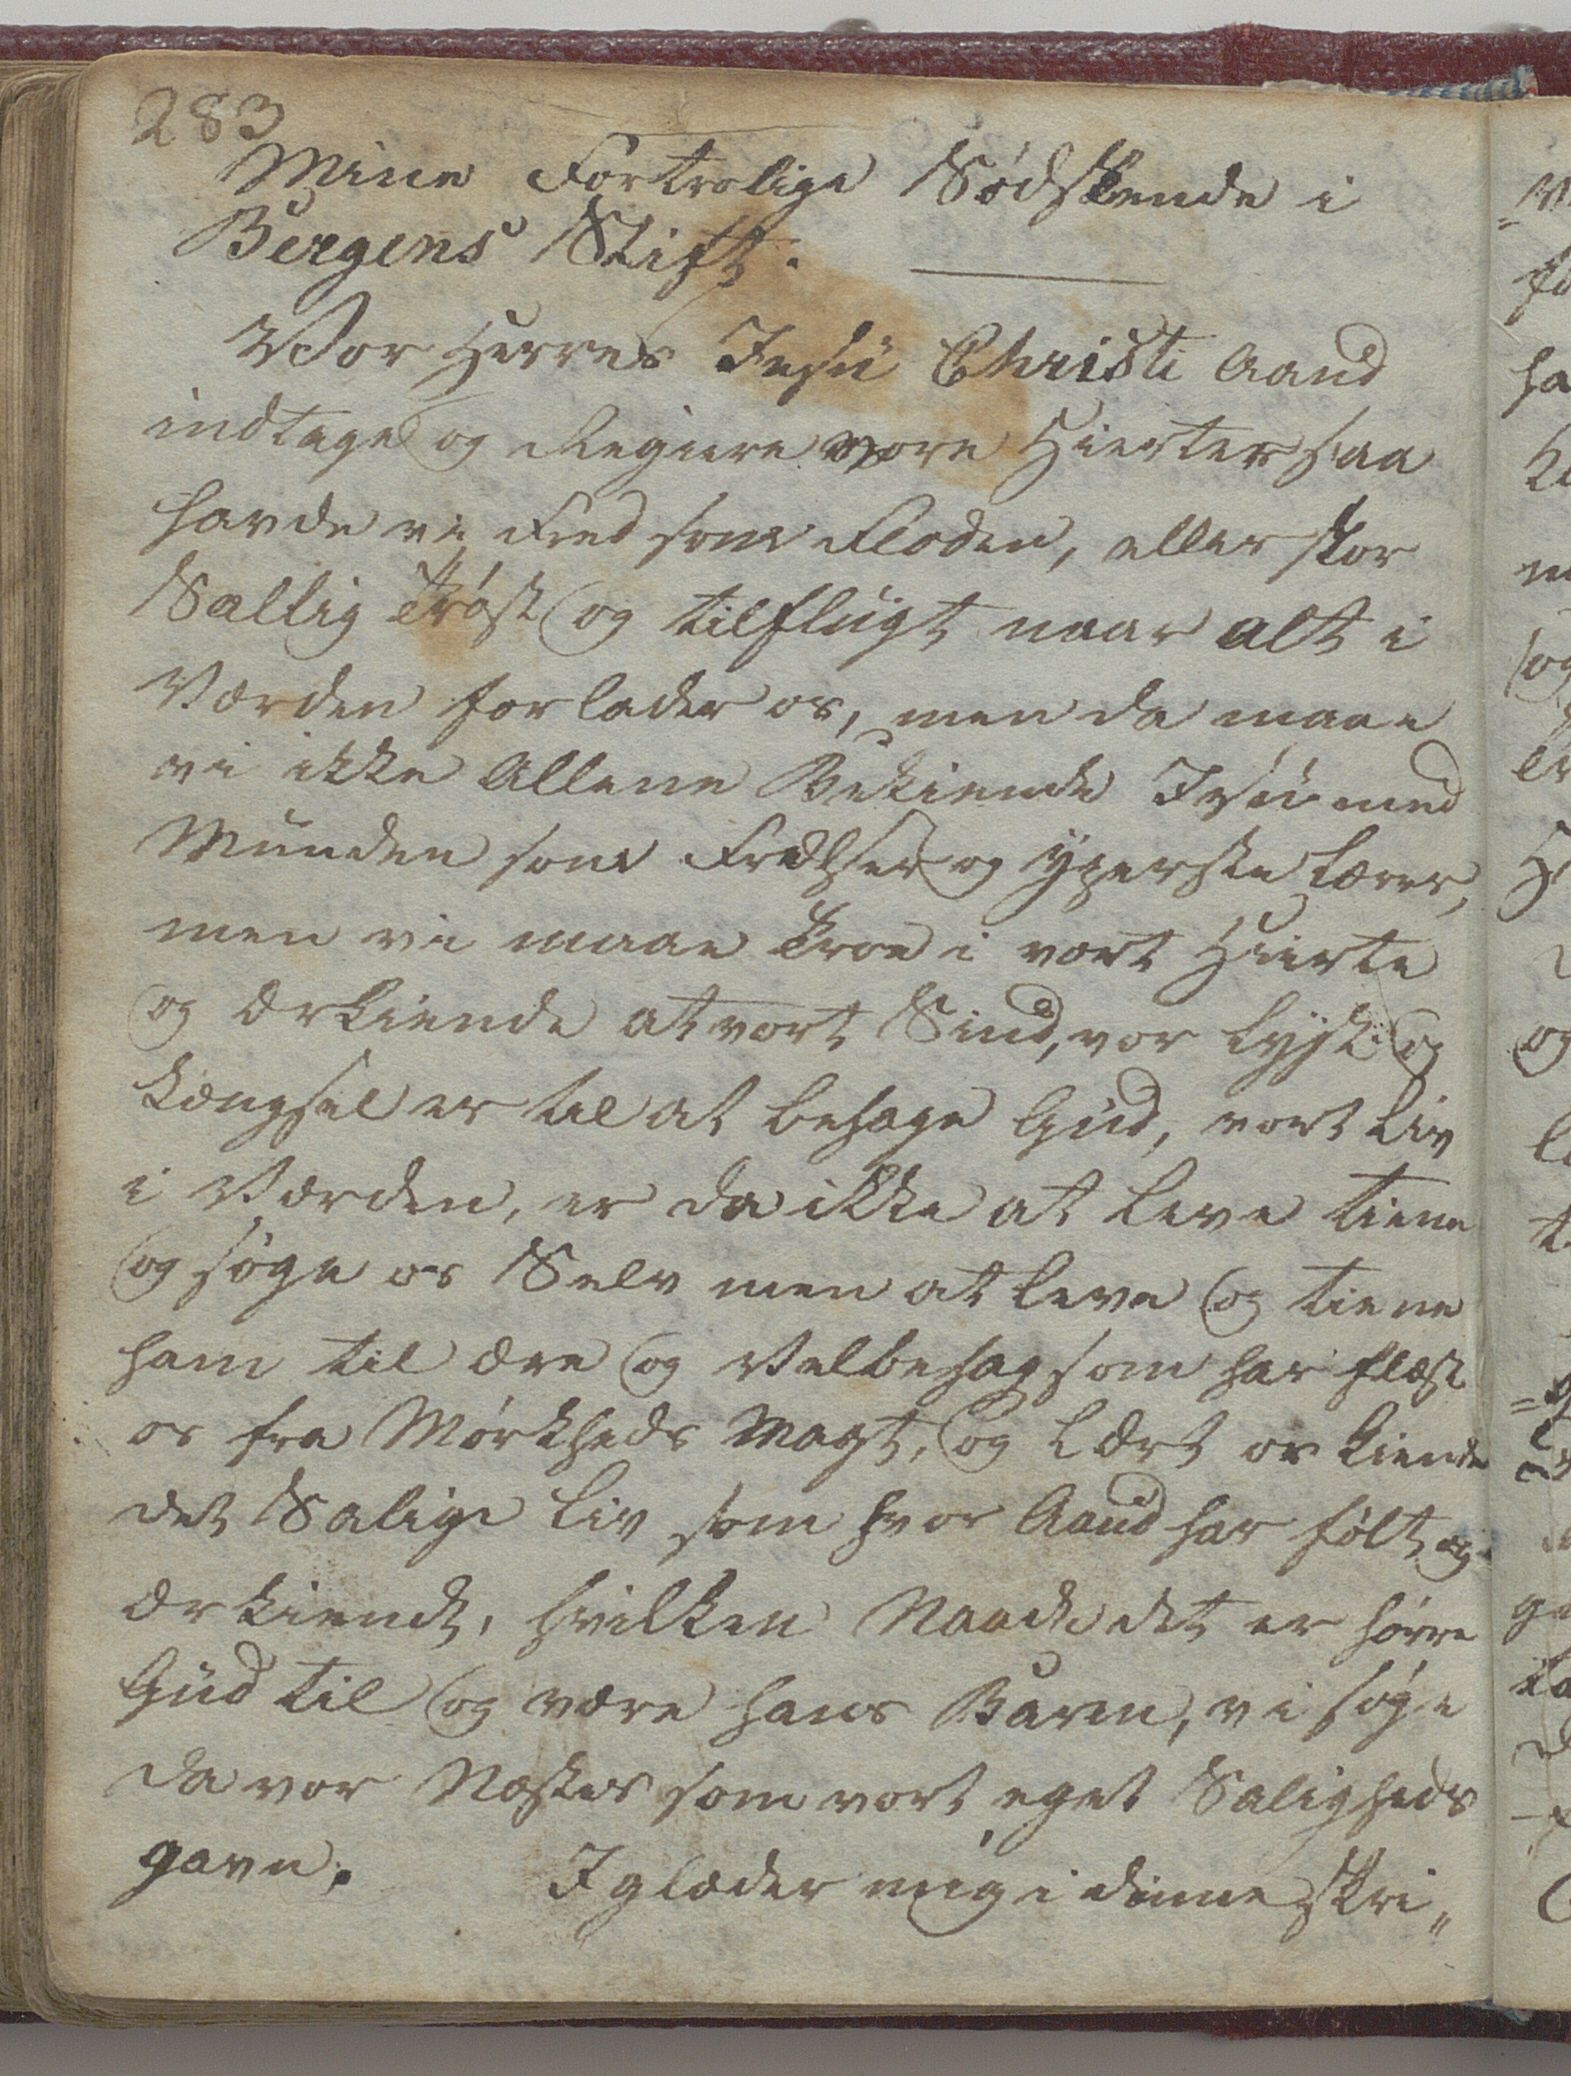 283
Mine Fortrolige Södskende i
Bergens Stift.
Vor Herres Jesu Christi Aand
indtage og Regiere vore Hierter saa
havde vi Fred som Floden, eller stor
Sallig Tröst og tilflugt naar alt i
Værden forlader os, men da maae
vi ikke Allene Bekiende Jesu med
Munden som Frelser og ÿperste lærer,
men vi maae troe i vort Hierte
og Ærkiende at vort Sind, vor lÿst og
længsel er til at behage Gud, vort liv
i Værden, er da ikke at leve tiene
og söge os Selv men at leve og tiene
ham til ære og Velbehag som har flæst
os fra Mörkheds Magt, og Lært os kiende
det Salige liv som hvor Aand har fölt og
Ærkiendt, hvilken Naade det er hörre
Gud til og være hans Baren, vi söge
da vor Næstes som vort eget Saligheds
gavn.
J glæder mig i dinne skri„